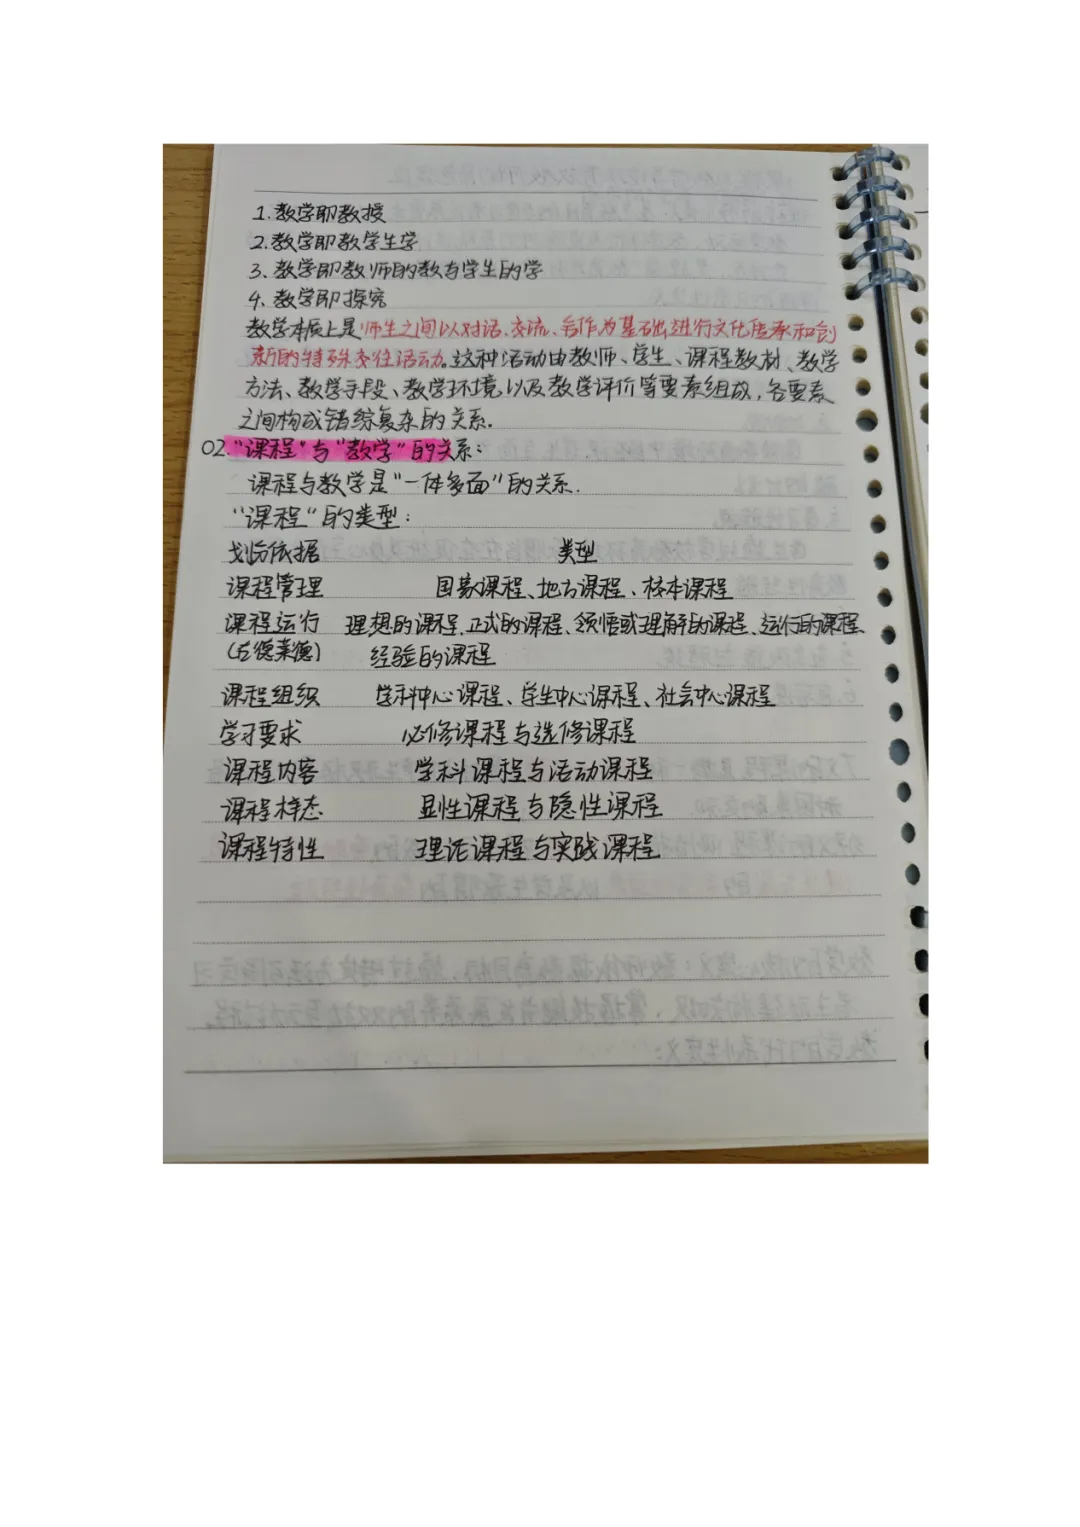 1.教学即教授
2.教学即教学生学
3.教学即教师的教与学生的学
4.教学即探究
教学本质上是师生之间以对话、交流、合作为基础进行文化传承和创
新的特殊交往活动。这种活动由教师、学生、课程教材、教学
方法、教学手段、教学环境以及教学评价等要素组成,各要素
之间构成错综复杂的关系。
02."课程"与"教学"的关系:
课程与教学是"一体多面"的关系.
"课程"的类型:
划分依据 类型
课程管理 国家课程、地方课程、校本课程
课程运行 理想的课程、正式的课程、领悟或理解的课程、运行的课程、
(古德莱德) 经验的课程
课程组织 学科中心课程、学生中心课程、社会中心课程
学习要求 必修课程与选修课程
课程内容 学科课程与活动课程
课程样态 显性课程与隐性课程
课程特性 理论课程与实践课程